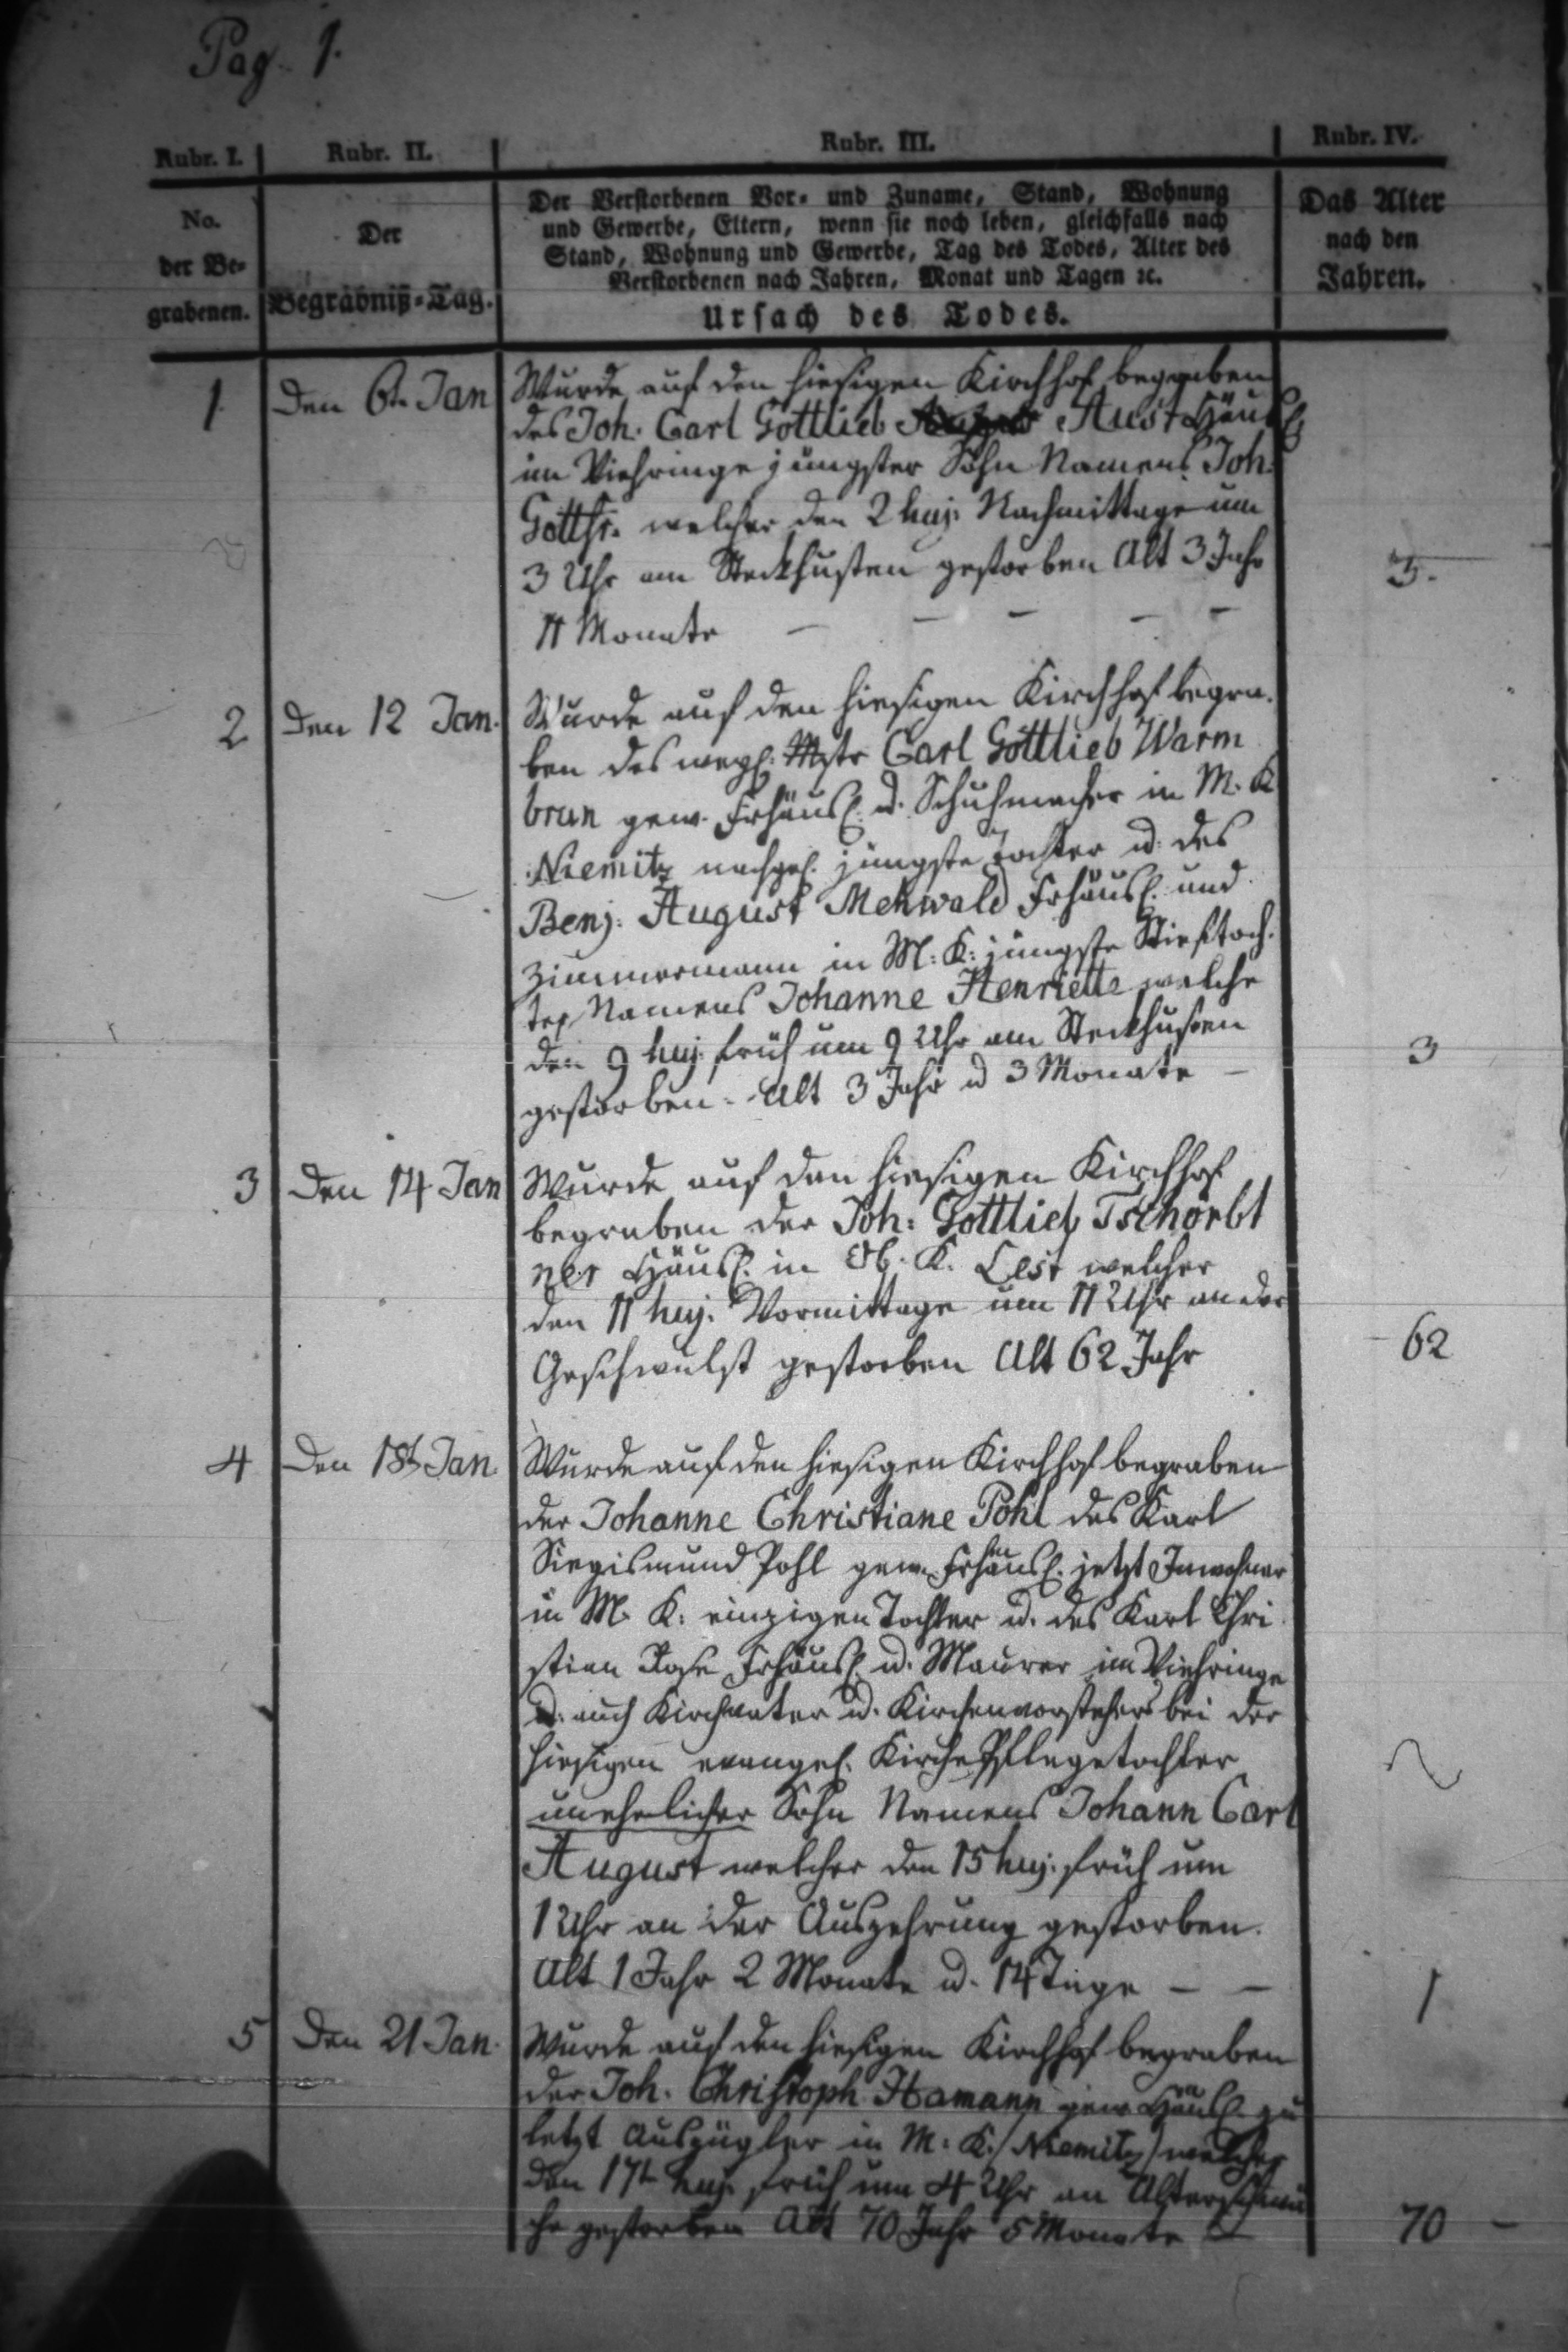 Pag. 1.
Rubr. I. Rubr. II. Rubr. III. Rubr. IV.
No. der Be-grabenen.
Der Begräbniß-Tag.
Der Verstorbenen Vor- und Zuname, Stand, Wohnung
und Gewerbe, Eltern, wenn sie noch leben, gleichfalls nach
Stand, Wohnung und Gewerbe, Tag des Todes, Alter des
Verstorbenen nach Jahren, Monat und Tagen ꝛc.
Ursach des Todes.
Das Alter
nach den
Jahren.
1. Den 6tn Jan Wurde auf den hiesigen Kirchhof begraben
des Joh. Carl Gottlieb Aust Häusl.
im Viehringe jüngster Sohn Namens Joh.
Gottfr. welcher den 2 huj. Nachmittage um
3 Uhr am Steckhusten gestorben Alt 3 Jahr 3.
11 Monate – – – –
2 Den 12 Jan. Wurde auf den hiesigen Kirchhof begra-
ben des weyl. Mstr Carl Gottlieb Warm
brun gew. Frhäusl. u. Schuhmacher in M. K
Niemitz nachgel. jüngste Tochter u. des
Benj. August Mehwald Frhäusl. und
Zimmermann in M. K. jüngste Stieftoch-
ter Namens Johanne Henriette welche
den 9 huj. früh um 9 Uhr am Steckhusten 3
gestorben. Alt 3 Jahr u 3 Monate –
3 Den 14 Jan Wurde auf den hiesigen Kirchhof
begraben der Joh. Gottlieb Tschörbt
ner Häusl. in Ob. K. Lest welcher
den 11 huj. Vormittage um 11 Uhr an der
Geschwulst gestorben Alt 62 Jahr 62
4 Den 18t Jan. Wurde auf den hiesigen Kirchhof begraben
der Johanne Christiane Pohl des Karl
Siegismund Pohl gew. Frhäusl. jetzt Inwohner
in M. K. einzigen Tochter u. des Karl Chri
stian Rose Frhäusl. u. Maurer im Viehringe
u. auch Kirchvater u. Kirchenvorstehers bei der
hiesigen evangel. Kirche Pflegetochter
unehelicher Sohn Namens Johann Carl
August welcher den 15 huj. früh um
1 Uhr an der Auszehrung gestorben.
Alt 1 Jahr 2 Monate u. 14 Tage – – 1
5 Den 21 Jan. Wurde auf den hiesigen Kirchhof begraben
der Joh. Christoph Hamann gew. Häusl. zu
letzt Auszügler in M. K. /Niemitz/ welcher
den 17t huj. früh um 4 Uhr an Alterschwä
che gestorben Alt 70 Jahr 5 Monate – 70 –